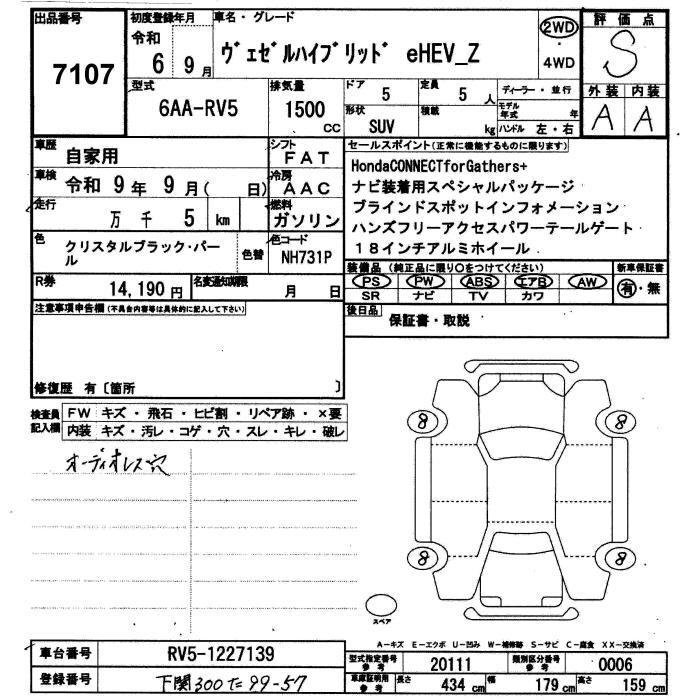 出品番号
7107
初度登録年月
令和
6 9月
車名・グレード
ヴェゼルハイブリッド eHEV_Z
2WD
・
4WD
評価点
S
外装 内装
A A
型式
6AA-RV5
排気量
1500
CC
ドア
5
定員
5 人
形状
SUV
積載
kg
ディーラー・並行
モデル年式 年
ハンドル 左・右
車歴
自家用
シフト
FAT
車検
令和 9年 9月( 日)
冷房
AAC
走行
万 千 5 km
燃料
ガソリン
色
クリスタルブラック・パー
ル
色替
色コード
NH731P
R券
14,190 円
名変通知期限
月 日
セールスポイント(正常に機能するものに限ります)
HondaCONNECTforGathers+
ナビ装着用スペシャルパッケージ
ブラインドスポットインフォメーション
ハンズフリーアクセスパワーテールゲート
18インチアルミホイール
装備品(純正品に限り○をつけてください)
新車保証書
PS PW ABS エアB AW
SR ナビ TV カワ
有・無
後日品
保証書・取説
注意事項申告欄(不具合内容等は具体的に記入して下さい)
修復歴 有〔箇所 〕
検査員
記入欄
FW キズ・飛石・ヒビ割・リペア跡・×要
内装 キズ・汚レ・コゲ・穴・スレ・キレ・破レ
オーディオレス穴
8 8
8 8
スペア
A-キズ E-エクボ U-凹み W-補修跡 S-サビ C-腐食 XX-交換済
車台番号
RV5-1227139
登録番号
下関300た99-57
型式指定番号
参考
20111
類別区分番号
参考
0006
車庫証明用
参考
長さ
434 cm
幅
179 cm
高さ
159 cm